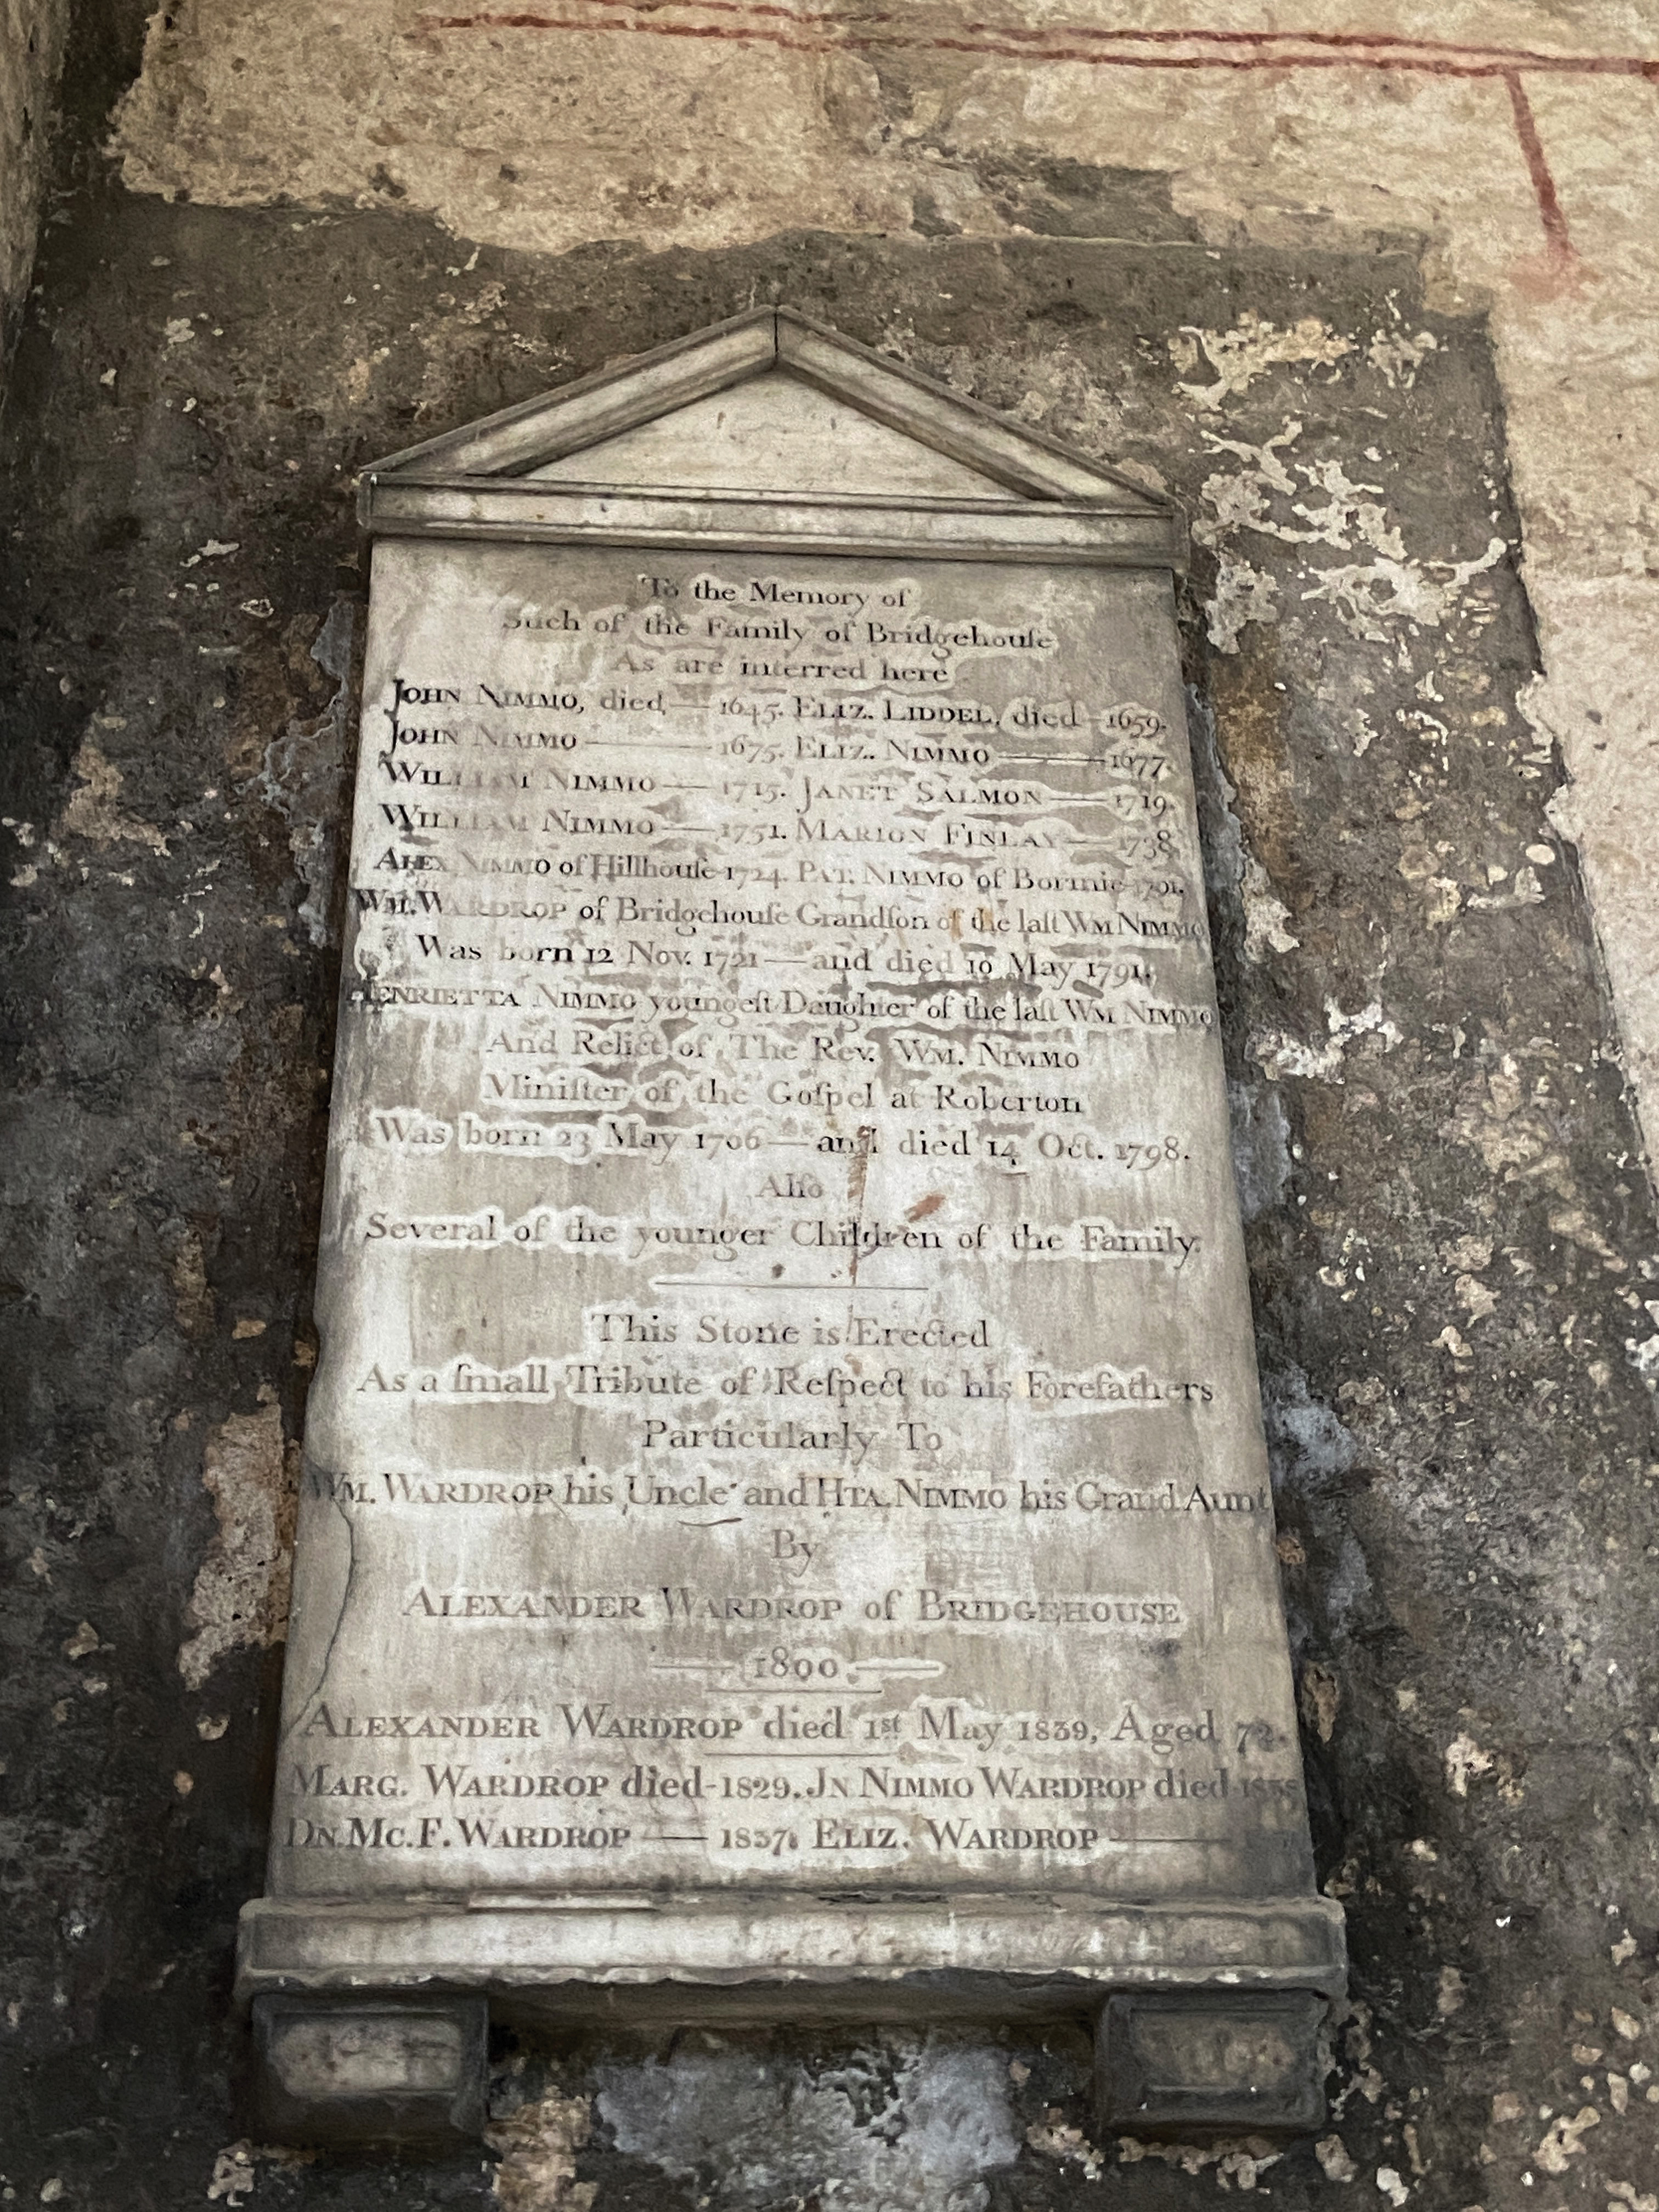 To the Memory of
Such of the Family of Bridgehouſe
As are interred here
JOHN NIMMO, died — 1645. ELIZ. LIDDEL, died — 1659.
JOHN NIMMO — 1675. ELIZ. NIMMO — 1677.
WILLIAM NIMMO — 1715. JANET SALMON — 1719.
WILLIAM NIMMO — 1751. MARION FINLAY — 1738.
ALEX NIMMO of Hillhouſe 1724. PAT. NIMMO of
WM. WARDROP of Bridgehouſe Grandſon of the laſt WM NIMMO
Was born 12 Nov. 1721 — and died 10 May 1791.
HENRIETTA NIMMO youngeſt Daughter of the laſt WM NIMMO
And Relict of The Rev. WM. NIMMO
Miniſter of the Goſpel at Roberton
Was born 23 May 1706 — and died 14 Oct. 1798.
Alſo
Several of the younger Children of the Family.
This Stone is Erected
As a ſmall Tribute of Reſpect to his Forefathers
Particularly To
WM. WARDROP his Uncle and HTA. NIMMO his Grand Aunt
By
ALEXANDER WARDROP of BRIDGEHOUSE
1800
ALEXANDER WARDROP died 1st May 1839, Aged 72.
MARG. WARDROP died - 1829. JN NIMMO WARDROP died
DN. MC. F. WARDROP — 1837. ELIZ. WARDROP —